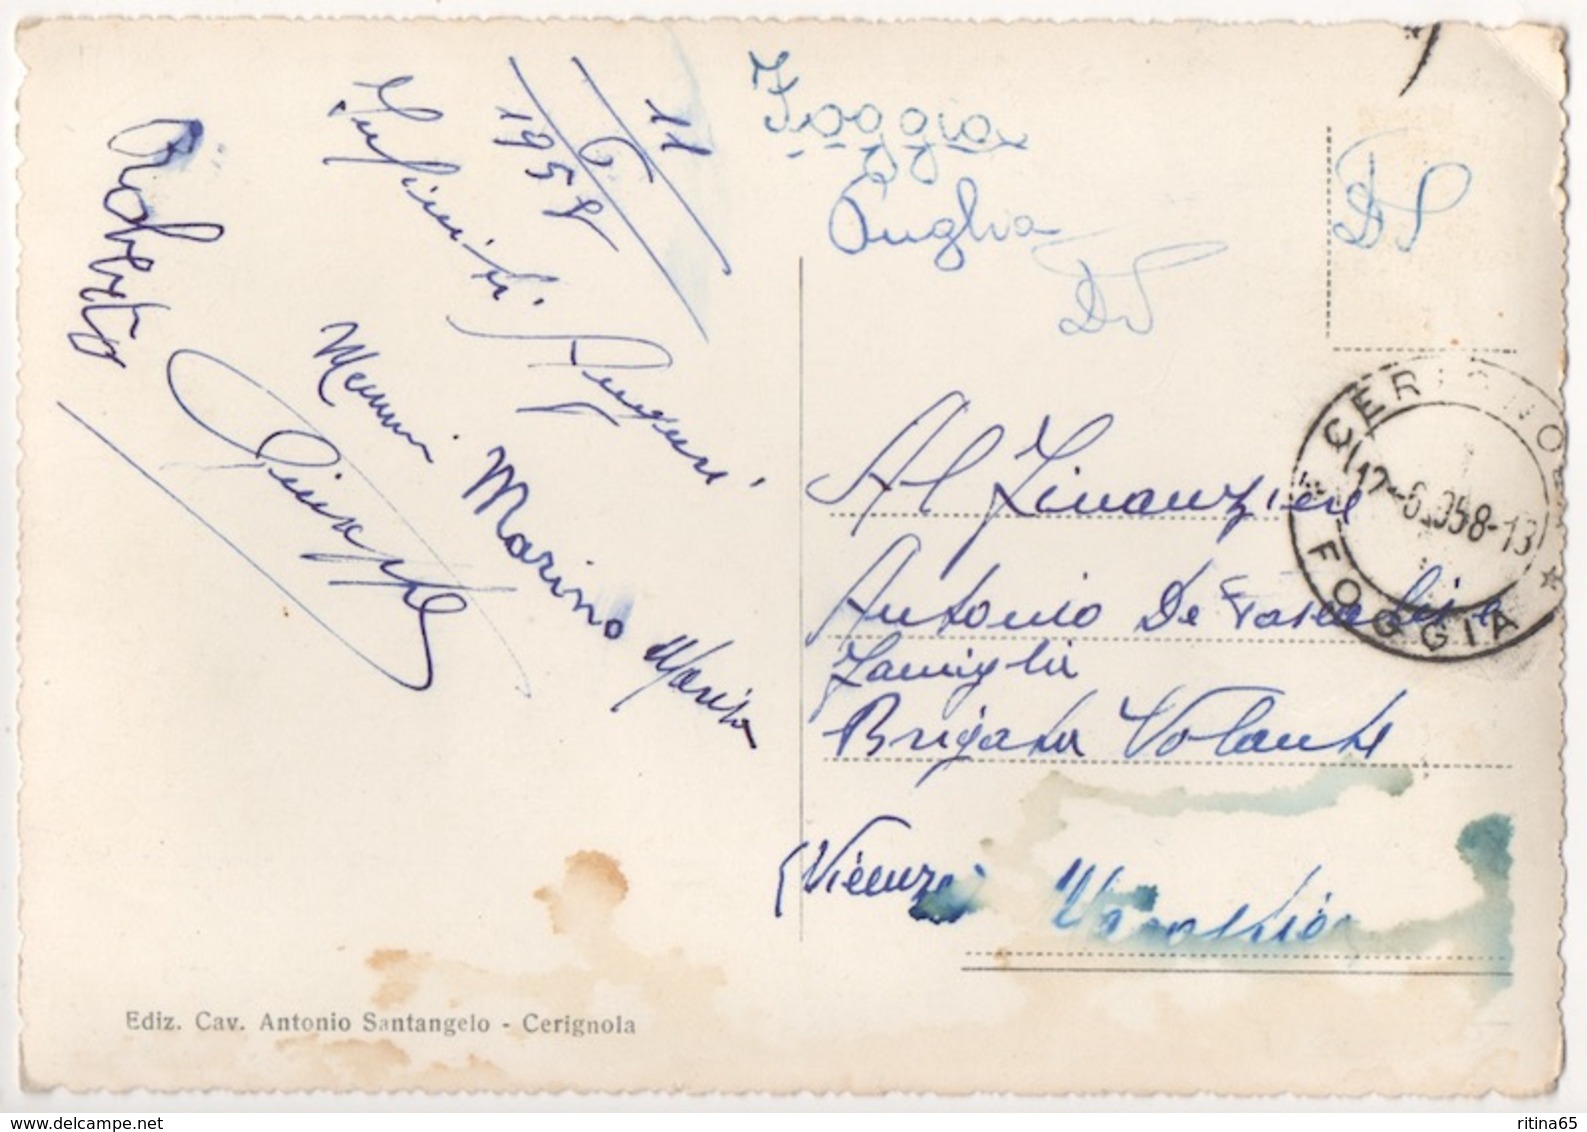 11
6
1958
Infiniti Auguri
Memmi Marino Maria
Giuseppe
Roberto
Foggia
Puglia
DS
DS
Al Finanziere
Antonio De Pascalis e
Famiglia
Brigata Volante
(Vicenza)
CERIGNOLA
12-6.1958-13
* FOGGIA *
Ediz. Cav. Antonio Santangelo - Cerignola
www.delcampe.net
ritina65